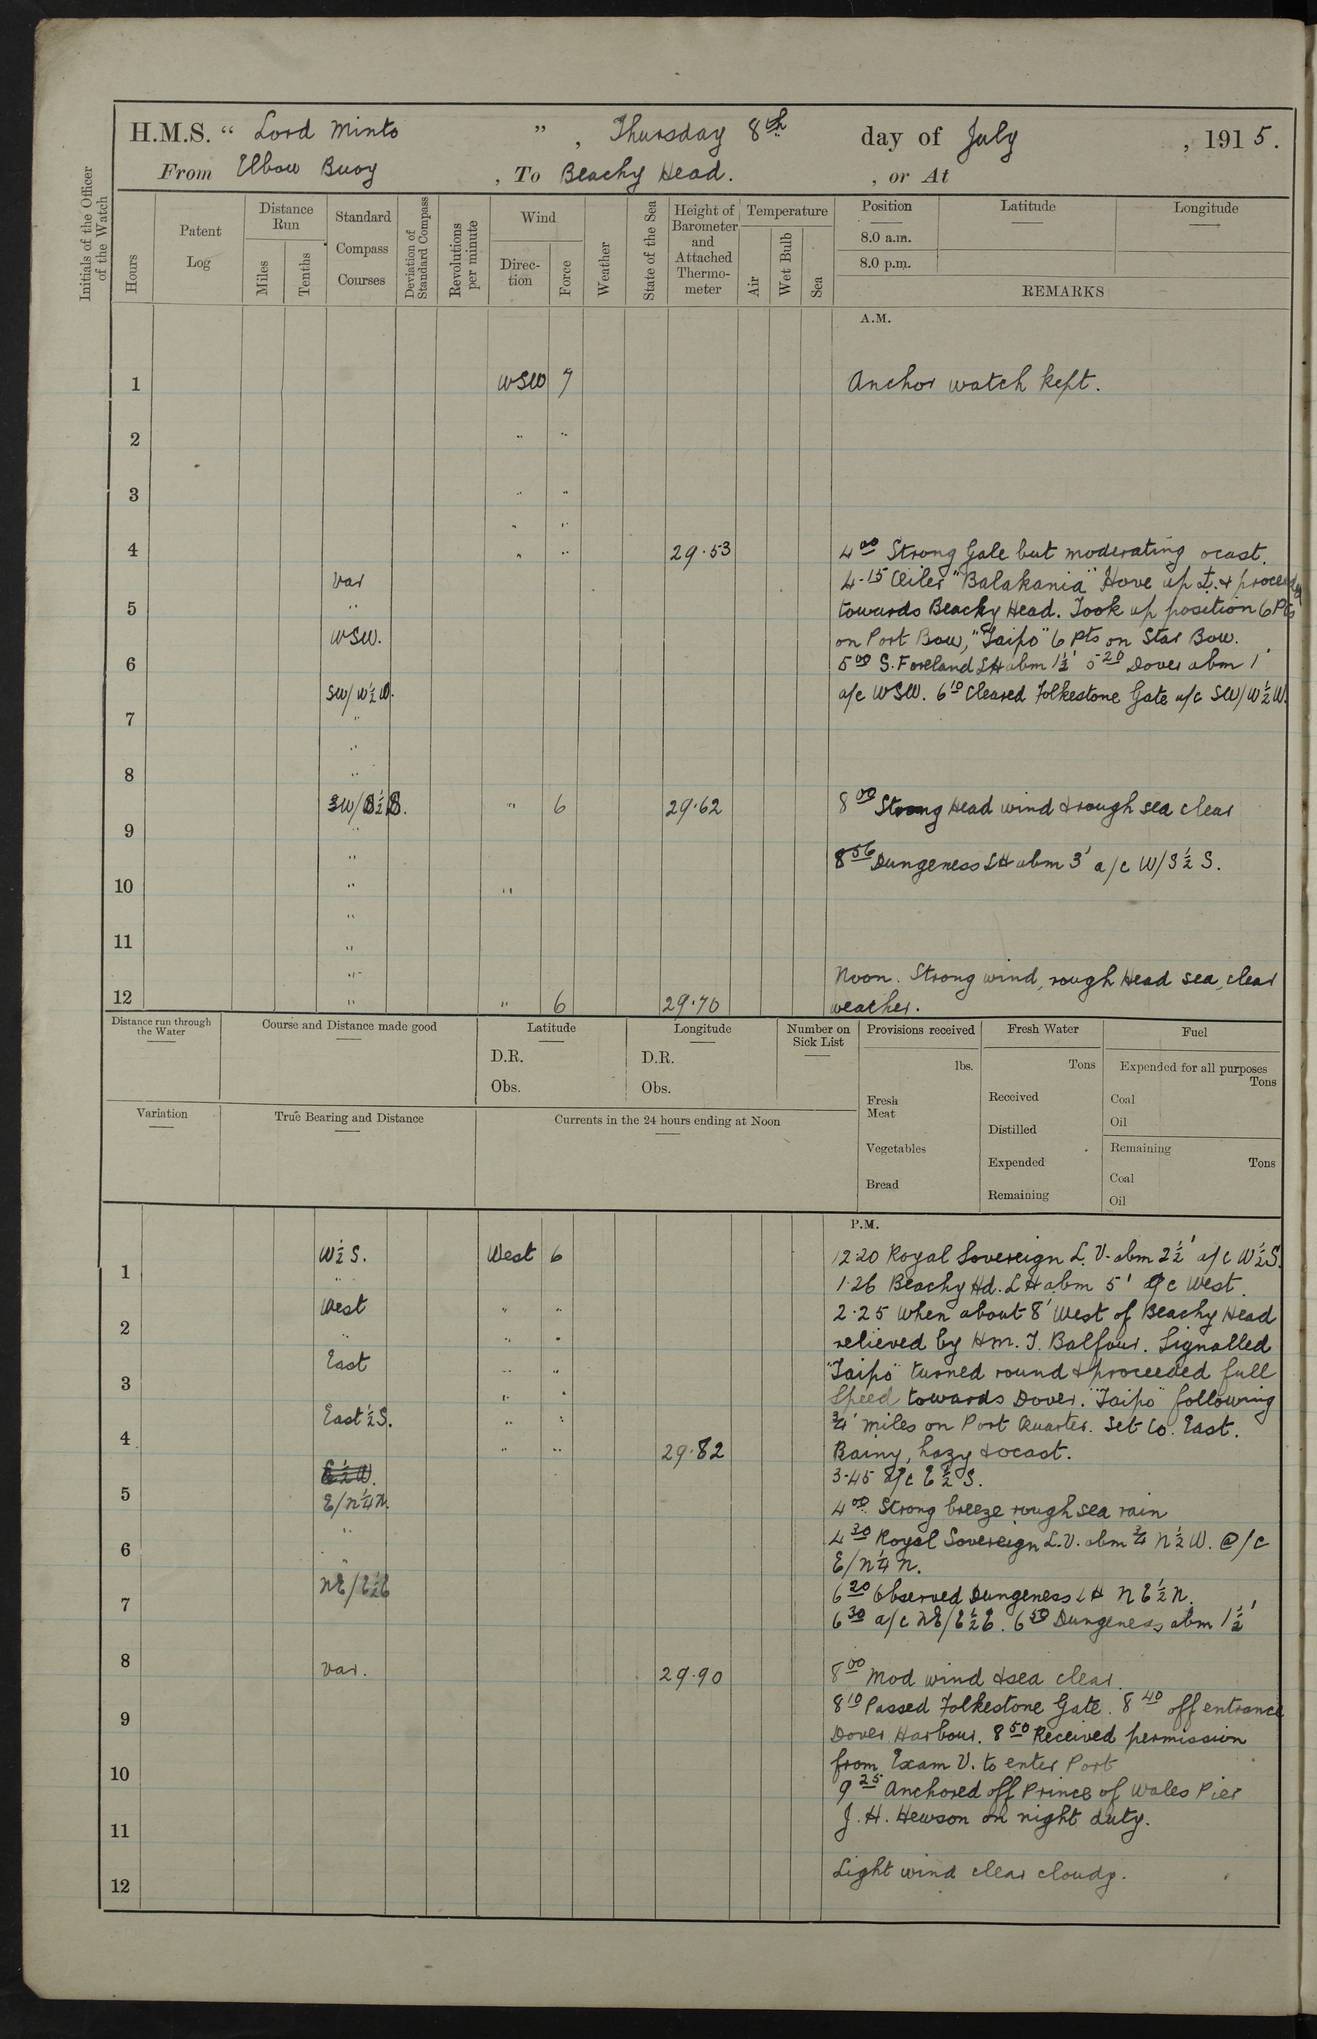 H.M.S. “ Lord Minto ”, Thursday 8th day of July, 1915.
From Elbow Buoy, To Beachy Head., or At
Initials of the Officer of the Watch
Hours
Patent Log
Distance Run
Miles
Tenths
Standard Compass Courses
Deviation of Standard Compass
Revolutions per minute
Wind
Direction
Force
Weather
State of the Sea
Height of Barometer and Attached Thermometer
Temperature
Air
Wet Bulb
Sea
Position
8.0 a.m.
8.0 p.m.
Latitude
Longitude
REMARKS
A.M.
1 WSW 7 Anchor watch kept.
2 " "
3 " "
" "
4 " " 29.53 4 00 Strong Gale but moderating ocast.
var 4-15 Oiler "Balakania" Hove up ⚓. & proceeded
5 " towards Beachy Head. Took up position 6 Pts
WSW. on Port Bow, "Taipo" 6 Pts on Star Bow.
6 5 00 S. Foreland LH abm 1½' 5 20 Dover abm 1'
SW/W½W. a/c WSW. 6 10 Cleared Folkestone Gate a/c SW/W½W.
7 "
"
8 "
" 6 29.62 8 00 Strong Head wind & rough sea clear
9 "
" 8 56 Dungeness LH abm 3' a/c W/S½S.
10 " "
"
11 "
" Noon. Strong wind, rough Head sea, clear
12 " " 6 29.70 weather.
Distance run through the Water
Course and Distance made good
Latitude
D.R.
Obs.
Longitude
D.R.
Obs.
Number on Sick List
Provisions received
lbs.
Fresh Meat
Vegetables
Bread
Fresh Water
Tons
Received
Distilled
Expended
Remaining
Fuel
Expended for all purposes
Tons
Coal
Oil
Remaining
Tons
Coal
Oil
Variation
True Bearing and Distance
Currents in the 24 hours ending at Noon
P.M.
W½S. West 6 12.20 Royal Sovereign L.V. abm 2½' a/c W½S.
1 " 1.26 Beachy Hd. LH abm 5' a/c West.
West " " 2.25 When about 8' West of Beachy Head
2 " " " relieved by H.M.T. Balfour. Signalled
East " " "Taipo" turned round & proceeded full
3 " " Speed towards Dover. "Taipo" following
East½S. " " ¾' miles on Port Quarter. Set Co. East.
4 " " 29.82 Rainy, hazy & ocast.
E½W. 3.45 a/c E½S.
5 E/N¼N. 4 00 Strong breeze rough sea rain
" 4 30 Royal Sovereign L.V. abm ¾ N½W. @/c
6 " E/N¼N.
NE/E½E 6 20 Observed Dungeness LH NE½N.
7 6 30 a/c NE/E½E. 6 50 Dungeness abm 1½'
8 var. 29.90 8 00 Mod wind & sea clear.
9 8 10 Passed Folkestone Gate. 8 40 off entrance
Dover Harbour. 8 50 Received permission
10 from Exam V. to enter Port
9 25 Anchored off Prince of Wales Pier
11 J. H. Hewson on night duty.
12 Light wind clear cloudy.